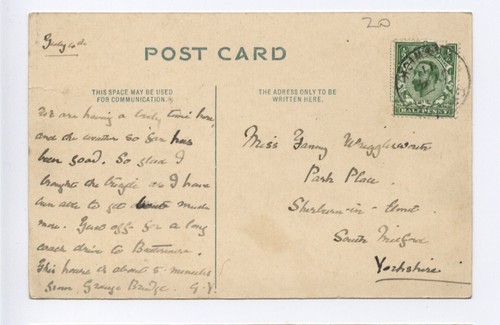 20
July 4th.
POST CARD
THIS SPACE MAY BE USED
FOR COMMUNICATION.
THE ADRESS ONLY TO BE
WRITTEN HERE.
HALFPENNY
We are having a lovely time here,
and the weather so far has
been good. So glad I
brought the as I have
been able to get about much
more. Just off for a long
coach drive to
This house is about 5 minutes
from Grange Bridge. G.V.
Miss Fanny Wrigglesworth
Park Place.
Sherburn-in-Elmet.
South Milford
Yorkshire.